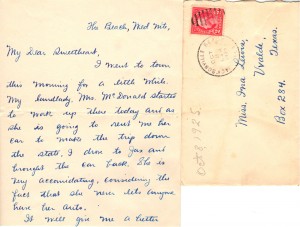 The Beach, Wed Nite,
My Dear Sweetheart,
I went to town
this morning for a little while.
My landlady, Mrs. McDonald started
to work up there today and as
she is going to rent me her
car to make the trip down
the state, I drove to Jax and
brought the car back. She is
very accomodating, considering the
fact that she never lets anyone
have her auto.
It will give me a better
Miss Ina Lewis,
Uvalde,
Texas.
Box 284.
Oct 8, 1925